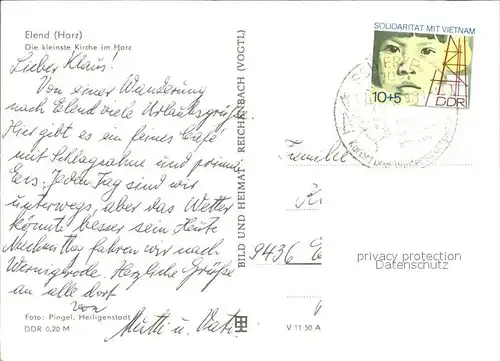 Elend (Harz)
Die kleinste Kirche im Harz
Lieber Klaus!
Von einer Wanderung
nach Elend viele Urlaubsgrüße
Hier gibt es ein feines Café
mit Schlagsahne und prima
Eis. Jeden Tag sind wir
unterwegs, aber das Wetter
könnte besser sein. Heute
Nachmittag fahren wir nach
Wernigrode. Herzliche Grüße
an alle dort
von
Mutti u. Vati
Foto: Pingel, Heiligenstadt
DDR 0,20 M
BILD UND HEIMAT REICHENBACH (VOGTL)
V 11 50 A
SOLIDARITÄT MIT VIETNAM
10+5
DDR
Familie
9436
privacy protection
Datenschutz